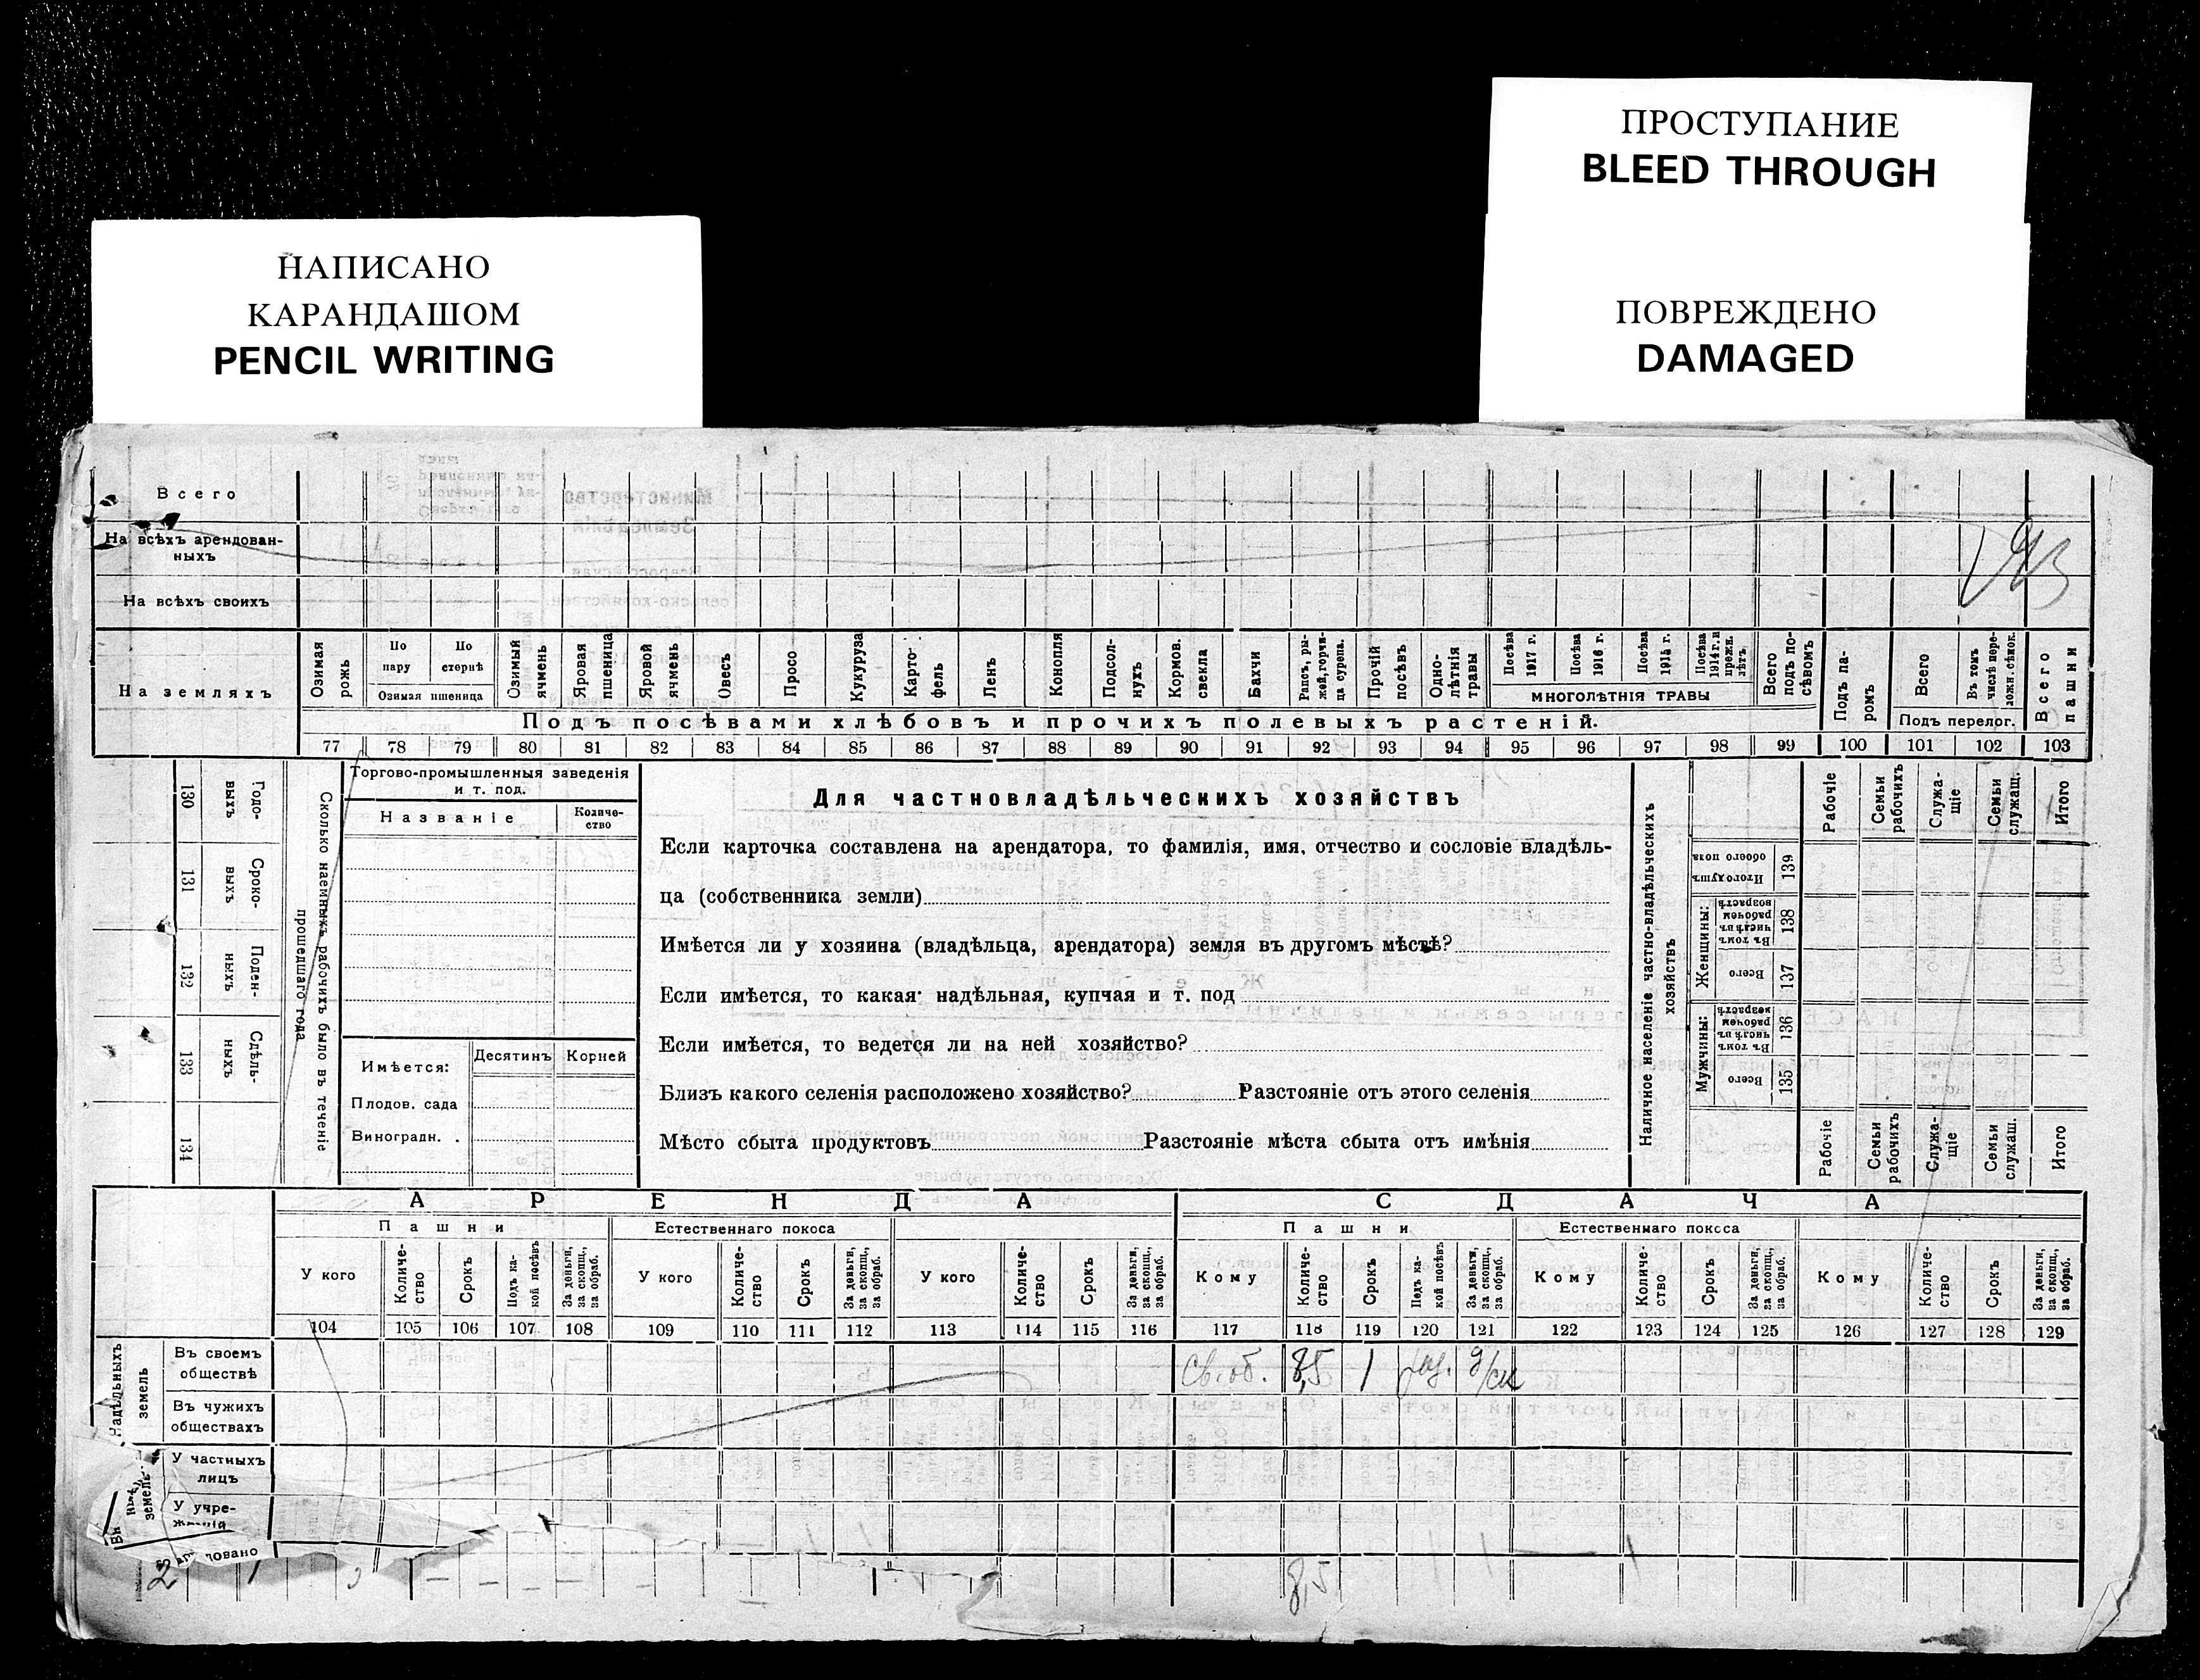 ПРОСТУПАНИЕ
BLEED THROUGH
ПОВРЕЖДЕНО
DAMAGED
НАПИСАНО
КАРАНДАШОМ
PENCIL WRITING
Всего
На всѣхъ арендован-
ныхъ
На всѣхъ своихъ
На земляхъ
Озимая рожь
По пару
По стернѣ
Озимая пшеница
Озимый ячмень
Яровая пшеница
Яровой ячмень
Овесъ
Просо
Кукуруза
Карто-фель
Ленъ
Конопля
Подсол-нухъ
Кормов. свекла
Бахчи
Рапсъ, ры-жей, горчи-ца сурепа.
Прочій посѣвъ
Одно-лѣтнія травы
Посѣва 1917 г.
Посѣва 1916 г.
Посѣва 1915 г.
Посѣва 1914 г. и прежн. лѣтъ.
МНОГОЛѢТНІЯ ТРАВЫ
Всего подъ по-сѣвомъ
Подъ па-ромъ
Всего
Въ томъ числѣ пере-ложн. сѣнок.
Подъ перелог.
Всего пашни
Подъ посѣвами хлѣбовъ и прочихъ полевыхъ растеній.
77 78 79 80 81 82 83 84 85 86 87 88 89 90 91 92 93 94 95 96 97 98 99 100 101 102 103
130 Годо-выхъ
131 Сроко-выхъ
132 Поден-ныхъ
133 Сдѣль-ныхъ
134
Сколько наемныхъ рабочихъ было въ теченіе
прошедшаго года
Торгово-промышленныя заведенія
и т. под.
Названіе
Количе-ство
Имѣется:
Десятинъ
Корней
Плодов. сада
Виноградн.
Для частновладѣльческихъ хозяйствъ
Если карточка составлена на арендатора, то фамилія, имя, отчество и сословіе владѣль-
ца (собственника земли)
Имѣется ли у хозяина (владѣльца, арендатора) земля въ другомъ мѣстѣ?
Если имѣется, то какая: надѣльная, купчая и т. под
Если имѣется, то ведется ли на ней хозяйство?
Близъ какого селенія расположено хозяйство? Разстояніе отъ этого селенія
Мѣсто сбыта продуктовъ Разстояніе мѣста сбыта отъ имѣнія
Наличное населеніе частно-владѣльческихъ
хозяйствъ
Рабочіе
Семьи рабочихъ
Служа-щіе
Семьи служащ.
Итого
Итого душъ обоего пола 139
Женщины:
Въ томъ числѣ въ рабочемъ возрастѣ 138
Всего 137
Мужчины:
Въ томъ числѣ въ рабочемъ возрастѣ 136
Всего 135
Рабочіе
Семьи рабочихъ
Служа-щіе
Семьи служаш.
Итого
АРЕНДА
СДАЧА
Пашни
Естественнаго покоса
Пашни
Естественнаго покоса
У кого
Количе-ство
Срокъ
Подъ ка-кой посѣвъ
За деньги, за скопщ., за обраб.
У кого
Количе-ство
Срокъ
За деньги, за скопщ., за обраб.
У кого
Количе-ство
Срокъ
За деньги, за скопщ., за обраб.
Кому
Количе-ство
Срокъ
Подъ ка-кой посѣвъ
За деньги, за скопщ., за обраб.
Кому
Количе-ство
Срокъ
За деньги, за скопщ., за обраб.
Кому
Количе-ство
Срокъ
За деньги, за скопщ., за обраб.
104 105 106 107 108 109 110 111 112 113 114 115 116 117 118 119 120 121 122 123 124 125 126 127 128 129
Надѣльныхъ земель
Въ своемъ
обществѣ
Св. об. 8,5 1
Въ чужихъ
обществахъ
земель
У частныхъ
лицъ
У учре-
2 1
8,5